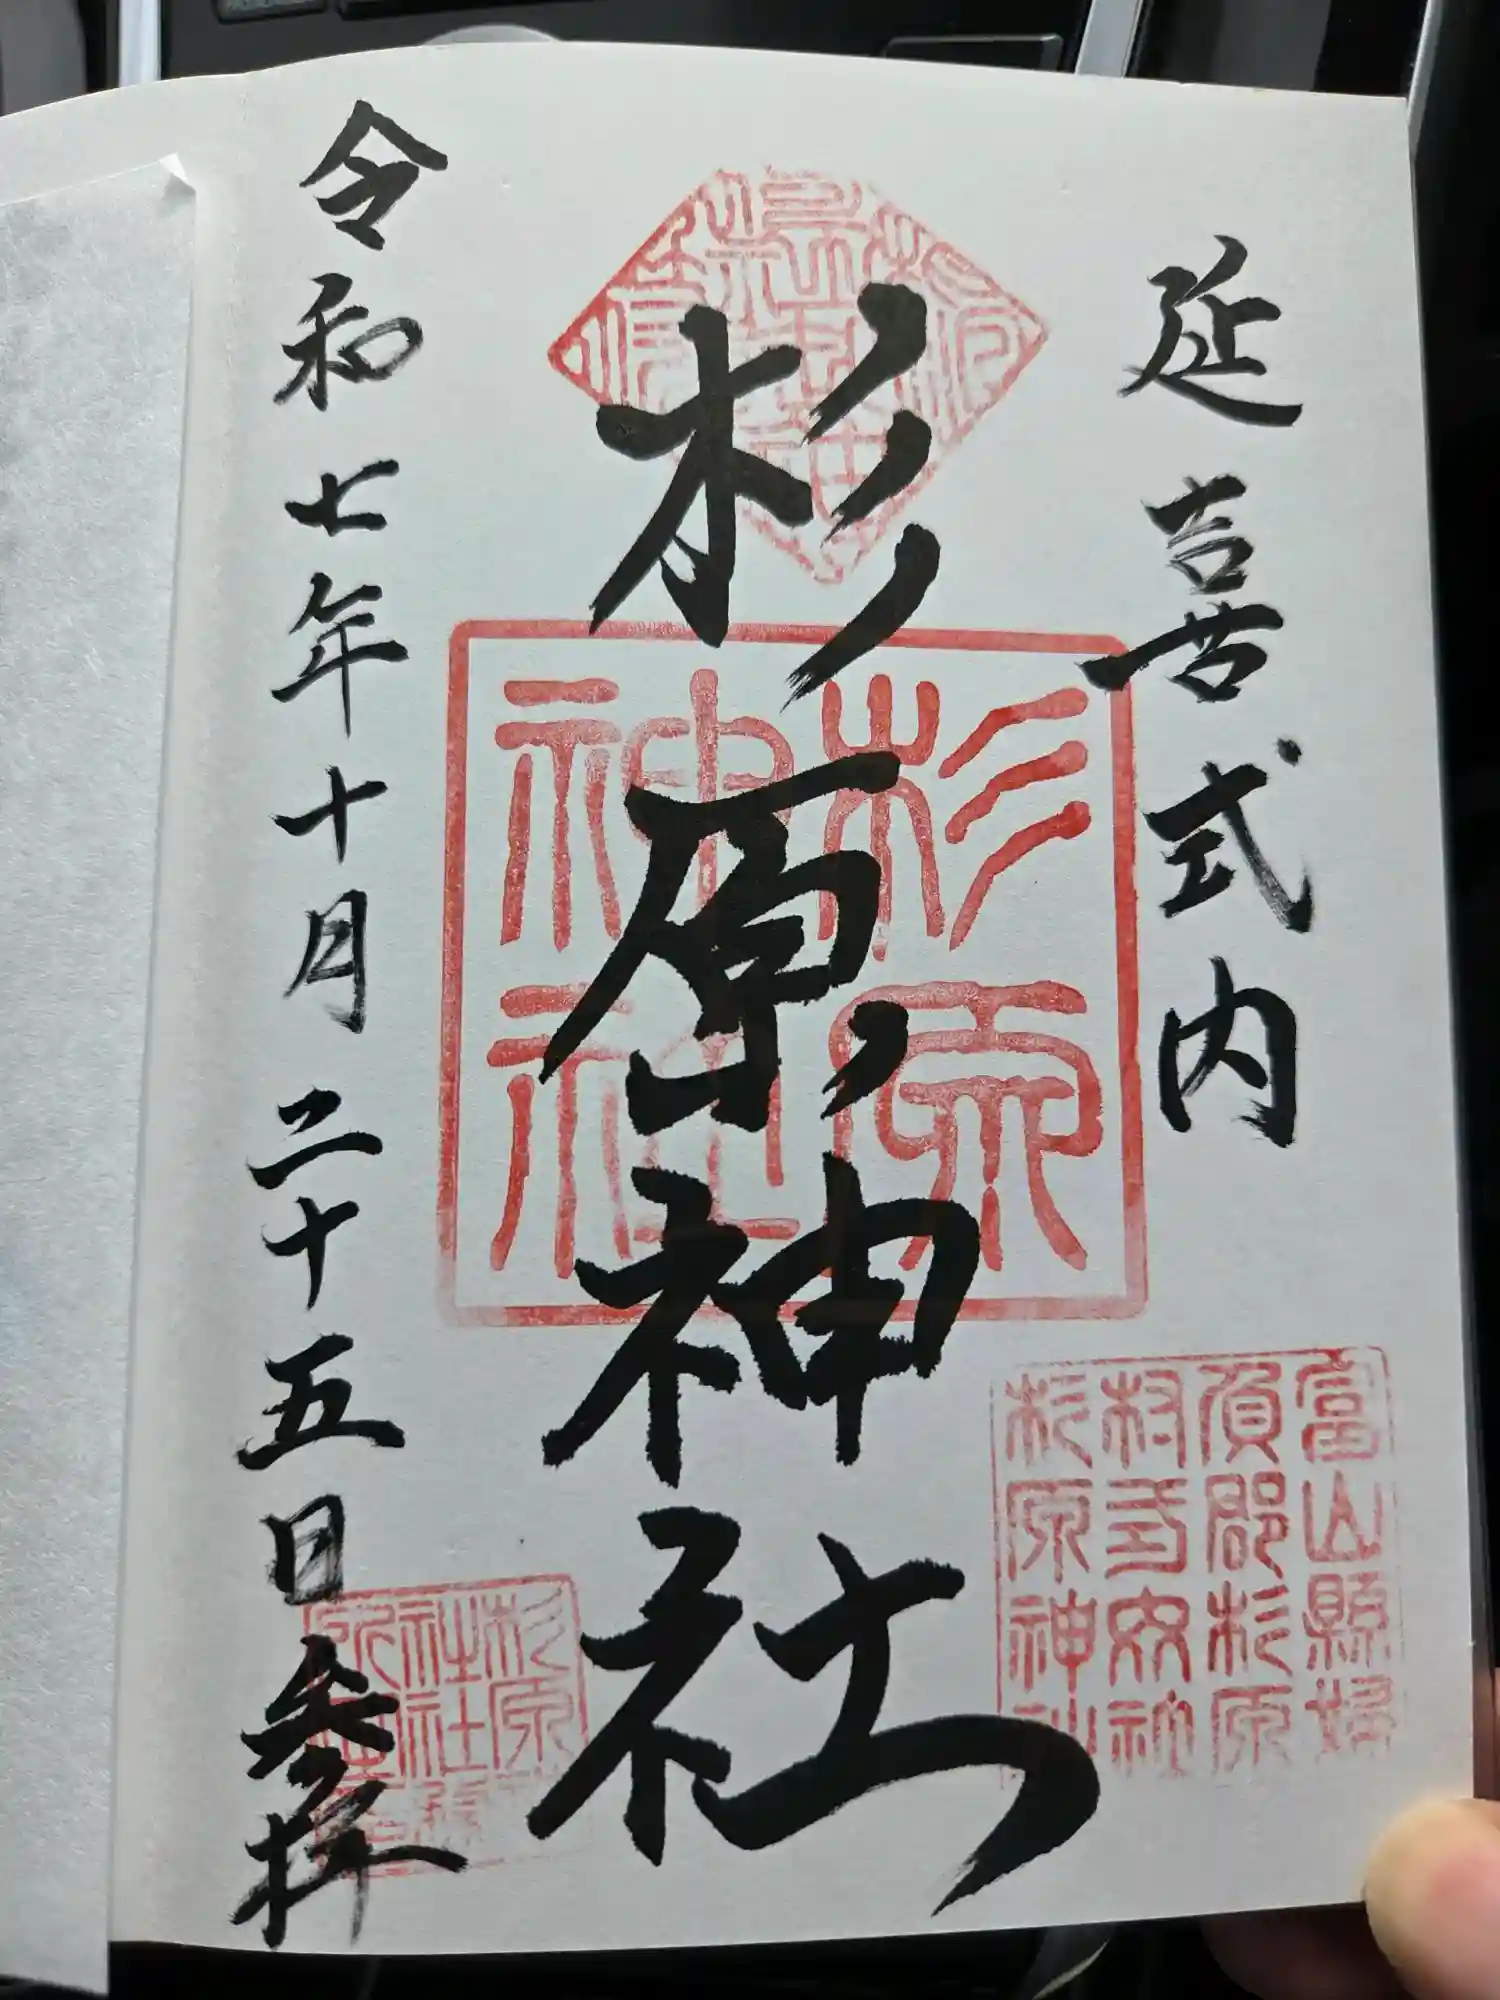 延喜式内
杉原神社
令和七年十月二十五日参拝
杉原
神社
富山縣婦
負郡杉原
杉原神社
杉原
社社